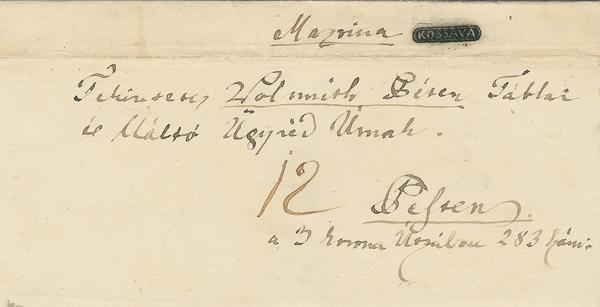 Mazrina KOSSAVA
Tekintetes Volmuth Béser Táblai
és Váltó Ügyvéd Úrnak.
12
Pesten
a 3 korona Úczában 283 szám: